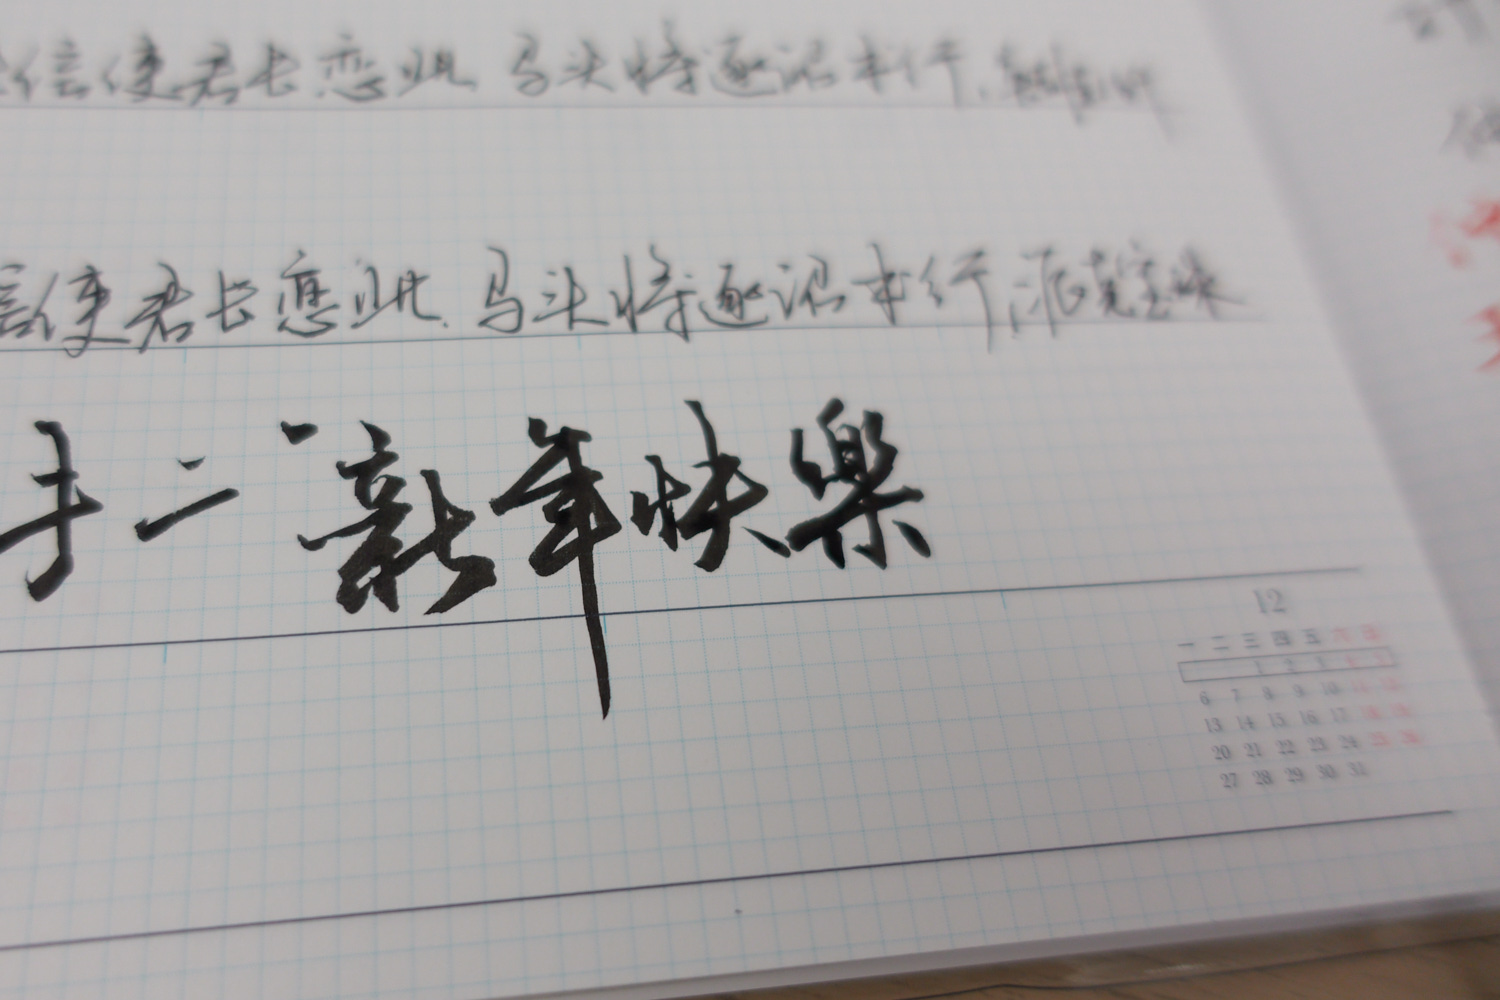 信使君长恋此 马头将逐诏书行
信使君长恋此 马头将逐诏书行
二 新年快樂
12
一 二 三 四 五 六 日
1 2 3 4 5
6 7 8 9 10 11 12
13 14 15 16 17 18 19
20 21 22 23 24 25 26
27 28 29 30 31